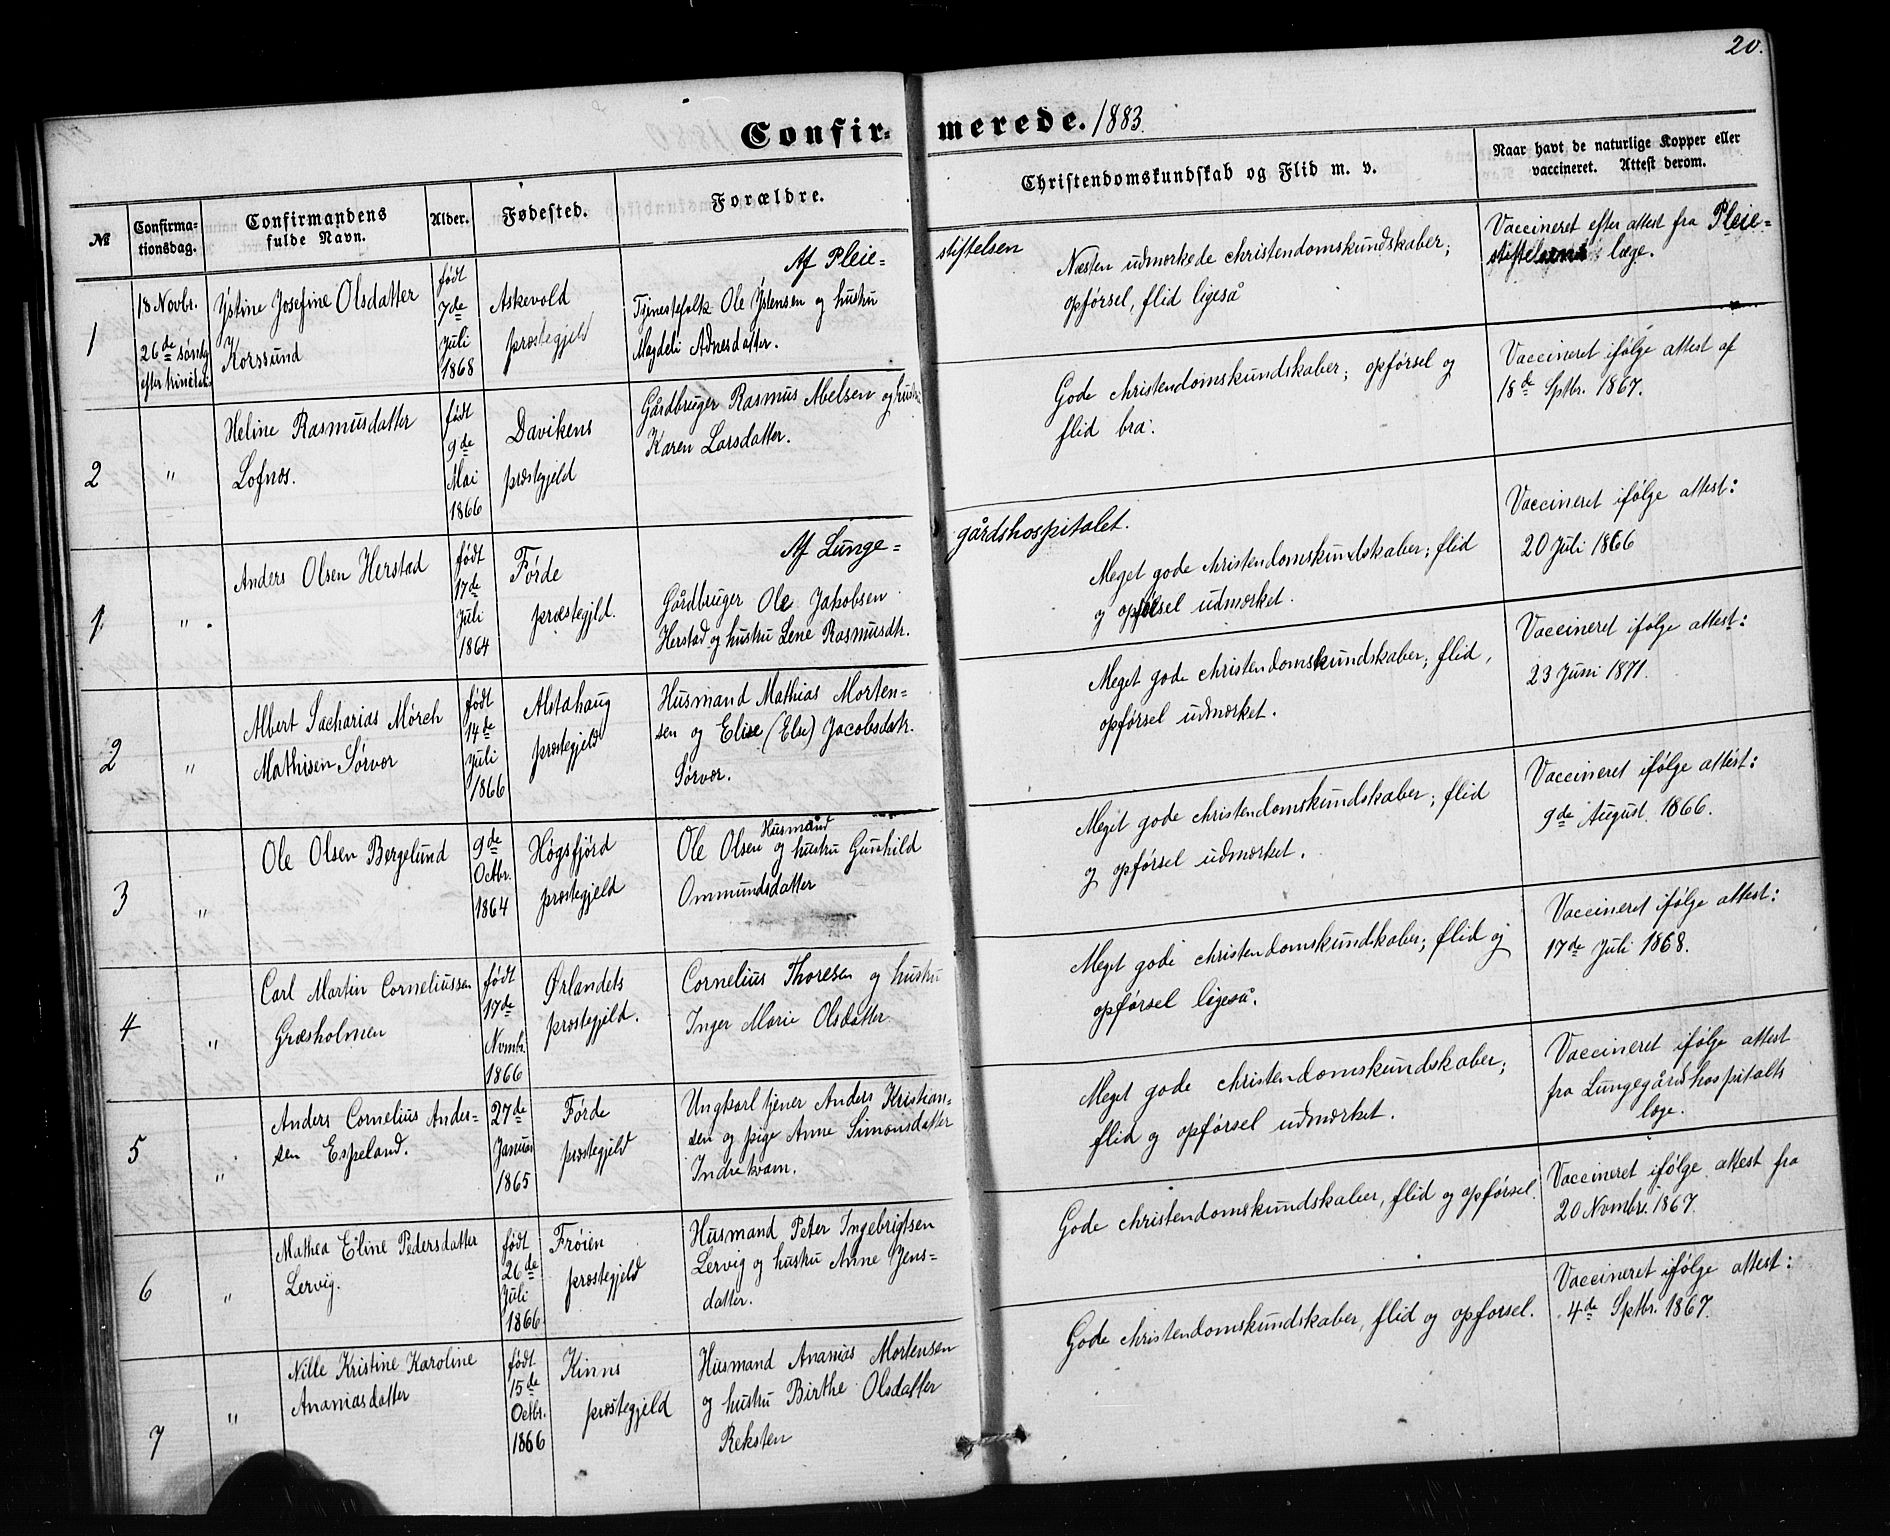 20.
Confir- merede. 1883.
№
Confirma-
tionsdag.
Confirmandens
fulde Navn.
Alder.
Fødested.
Forældre.
Christendomskundskab og Flid m. v.
Naar havt de naturlige Kopper eller
vaccineret. Attest derom.
Af Pleie=
stiftelsen
1
18 Novbr.
26de søndg
efter trinitatis
Ystine Josefine Olsdatter
Korssund
født
7de
Juli
1868
Askevold
præstegjeld
Tjenestefolk Ole Ystensen og hustru
Magdeli Adnesdatter.
Næsten udmærkede christendomskundskaber;
opførsel, flid ligeså
Vaccineret efter attest fra Pleie=
stiftelsens læge.
2
"
Heline Rasmusdatter
Lofnæs.
født
9de
Mai
1866
Davikens
præstegjeld
Gårdbruger Rasmus Abelsen og hustru
Karen Larsdatter.
Gode christendomskundskaber; opførsel og
flid bra.
Vaccineret ifølge attest af
18de Sptbr. 1867.
Af Lunge=
gårdshospitalet.
1
"
Anders Olsen Herstad
født
17de
Juli
1864
Førde
præstegjld.
Gårdbruger Ole Jakobsen
Herstad og hustru Lene Rasmusdtr.
Meget gode christendomskundskaber; flid
og opførsel udmærket.
Vaccineret ifølge attest:
20 Juli 1866
2
"
Albert Sacharias Mørch
Mathisen Sørvær
født
14de
Juli
1866
Alstahaug
præstegjeld
Husmand Mathias Morten=
sen og Elise (Else) Jacobsdatr.
Sørvær.
Meget gode christendomskundskaber; flid,
opførsel udmærket.
Vaccineret ifølge attest:
23 Juni 1871.
3
"
Ole Olsen Bergelund
9de
Octbr.
1864
Høgsfjørd
præstegjeld
Husmand
Ole Olsen og hustru Gunhild
Ommundsdatter
Meget gode christendomskundskaber; flid
og opførsel udmærket.
Vaccineret ifølge attest:
9de August. 1866.
4
"
Carl Martin Corneliussen
Græsholmen
født
17de
Nvmbr.
1866
Ørlandets
præstegjeld.
Cornelius Thoresen og hustru
Inger Marie Olsdatter.
Meget gode christendomskundkaber; flid og
opførsel ligeså.
Vaccineret ifølge attest:
17de Juli 1868.
5
"
Anders Cornelius Ander=
sen Espeland.
27de
Januar
1865
Førde
præstegjeld
Ungkarl tjener Anders Kristian=
sen og pige Anne Simonsdatter
Indrekvam.
Meget gode christendomskundskaber;
flid og opførsel udmærket.
Vaccineret ifølge attest
fra Lungegårdshospitalts
læge.
6
"
Mathea Eline Pedersdatter
Lervig.
født
26de
Juli
1866
Frøien
præstegjeld
Husmand Peter Ingebrigtsen
Lervig og hustru Anne Jens=
datter.
Gode christendomskundskaber, flid og opførsel.
Vaccineret ifølge attest fra
20 Novmbr. 1867.
7
"
Nille Kristine Karoline
Ananiasdatter
født
15de
Octbr.
1866
Kinns
præstegjeld
Husmand Ananias Mortensen
og hustru Birthe Olsdatter
Reksten
Gode christendomskundskaber, flid og opførsel.
Vaccineret ifølge attest:
4de Sptbr. 1867.